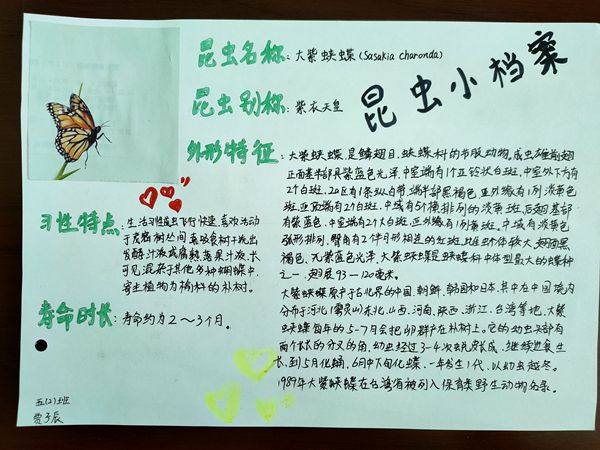 昆虫小档案
昆虫名称:大紫蛱蝶(Sasakia charonda)
昆虫别称:紫衣天皇
外形特征:大紫蛱蝶,是鳞翅目、蛱蝶科的节肢动物,成虫雄前翅
正面基半部具紫蓝色光泽,中室端有1个
状白斑,中室外下方有
2个白斑,2a区有1条纵白带,端半部黑褐色,亚外缘有1列淡黄色
斑,亚顶端有2个白斑,中域有5个横排列的淡黄斑,后翅基部
有紫蓝色,中室端有2个大白斑,亚外缘有1列黄斑。中域有淡黄色
弧形排列,臀角有2个半月形相连的红斑,雌蝶个体较大,翅面黑
褐色,无紫蓝色光泽,大紫蛱蝶是蛱蝶科中体型最大的蝶种
之一,翅展93—120毫米。
大紫蛱蝶原产于古北界的中国、朝鲜、韩国和日本,其中在中国境内
分布于河北(雾灵山)、东北、山西、河南、陕西、浙江、台湾等地,大紫
蛱蝶每年的5-7月会把卵群产在朴树上。它的幼虫头部有
两个长的分叉的角,幼虫经过3-4次蜕皮长成,继续进食生
长,到5月化蛹,6月中下旬化蝶,一年发生1代,以幼虫越冬。
1989年大紫蛱蝶在台湾省被列入保育类野生动物名录。
习性特点:生活习性成虫飞行快速,喜欢活动
于皮
树丛间,喜吸食树干流出
发酵汁液或腐熟落果汁液,长
可见混杂于其他多种蝴蝶中,
寄主植物为榆科的朴树。
寿命时长:寿命约为2~3个月。
五(2)班
贾子辰